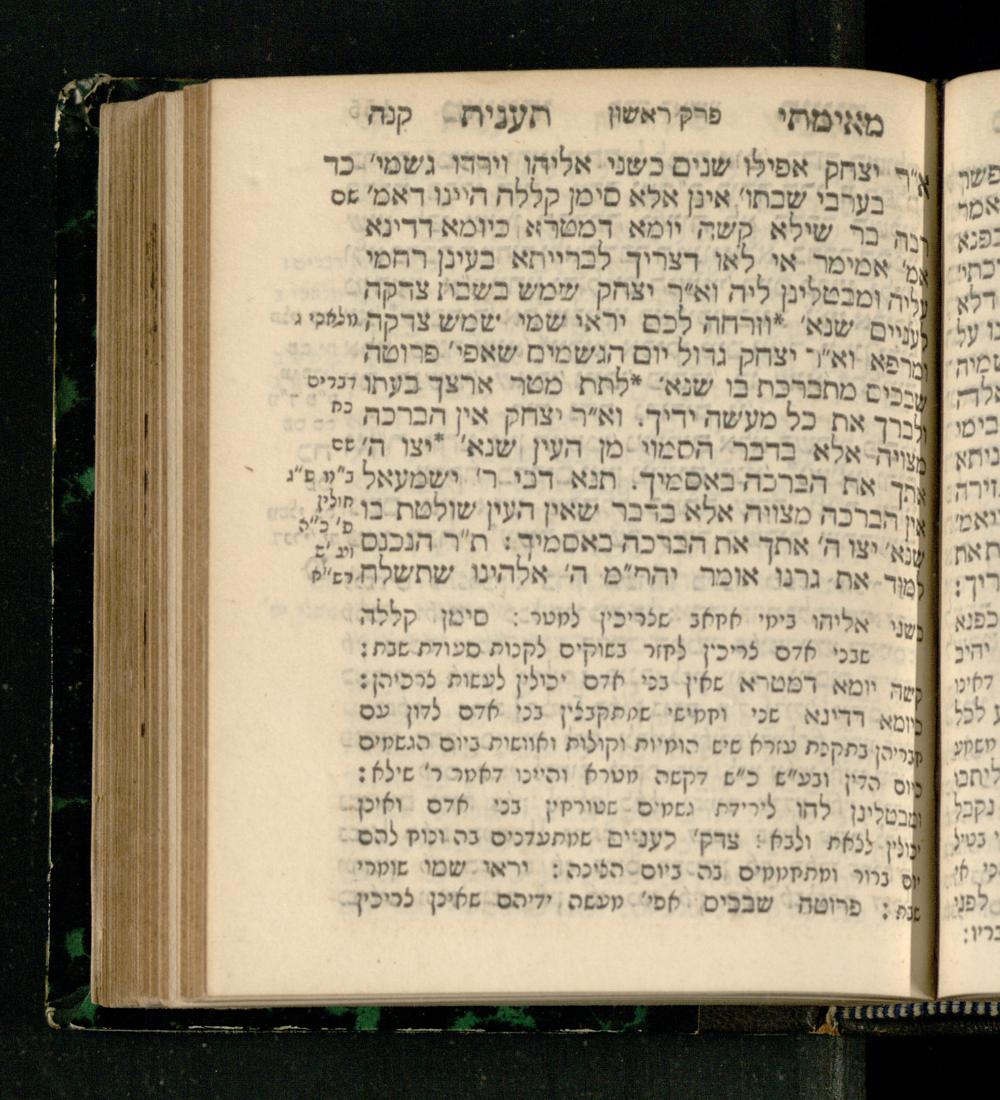 מאימתי פרק ראשון תענית קנה
א״ר יצחק אפילו שנים כשני אליהו וירדו גשמי׳ כד
בערבי שבתו׳ אינן אלא סימן קללה היינו דאמ׳ שם
רבה בר שילא קשה יומא דמטרא כיומא דדינא
אמ׳ אמימר אי לאו דצריך לברייתא בעינן רחמי
עליה ומבטלינן ליה וא״ר יצחק שמש בשבת צדקה
לעניים שנא׳ *וזרחה לכם יראי שמי שמש צדקה מלאכי ג
ומרפא וא״ר יצחק גדול יום הגשמים שאפי׳ פרוטה
שבכיס מתברכת בו שנא׳ *לתת מטר ארצך בעתו דברים
ולברך את כל מעשה ידיך. וא״ר יצחק אין הברכה כח
מצויה אלא בדבר הסמוי מן העין שנא׳ *יצו ה׳ שם
אתך את הברכה באסמיך. תנא דבי ר׳ ישמעאל ב״מ פ״ג
אין הברכה מצויה אלא בדבר שאין העין שולטת בו חולין
שנא׳ יצו ה׳ אתך את הברכה באסמיך : ת״ר הנכנס
למוד את גרנו אומר יהר״מ ה׳ אלהינו שתשלח רש״א
כשני אליהו בימי אחאב שצריכין למטר : סימן קללה
שבני אדם צריכין לחזר בשוקים לקנות סעודת שבת :
קשה יומא דמטרא שאין בני אדם יכולין לעשות צרכיהן :
כיומא דדינא שני וחמישי שמתקבצין בני אדם לדון עם
חבריהן בתקנת עזרא שיש הומיות וקולות ואוושות ביום הגשמים
כיום הדין ובע״ש כ״ש דקשה מטרא והיינו דאמר ר׳ שילא :
ומבטלינן להו לירידת גשמים שטורחין בני אדם ואינן
יכולין לצאת ולבא : צדק׳ לעניים שמתעדנים בה ונוח להם
יום ברור ומתחממים בה ביום הצינה : יראי שמו שומרי
שבת : פרוטה שבכיס אפי׳ מעשה ידיהם שאינן צריכין